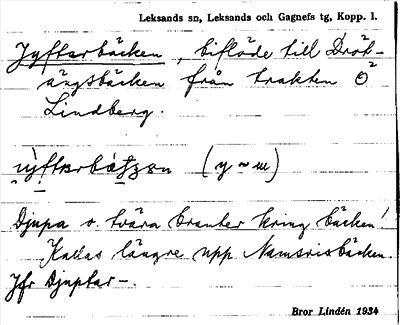 Leksands sn, Leksands och Gagnefs tg, Kopp. l.
Jyftarbäcken, biflöde till Dröv-
ängsbäcken från trakten Ö
Lindberg.
(y ~ ɯ)
Djupa o. tvära branter kring bäcken!
Kallas längre upp Namsrisbäcken.
Jfr Djuptar-.
Bror Lindén 1934